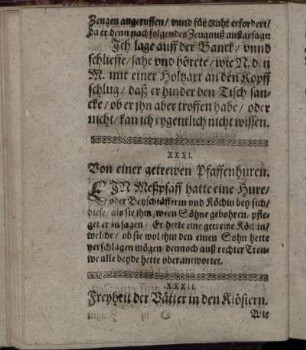 Zeugen angeruffen / vnnd für Raht erfordert /
da er denn nach folgendes Zeugnuß außgesagt
Ich lage auff der Banck / vnnd
schlieffe / sahe vnd hörete / wie N. den
M. mit einer Holtzaxt an den Kopff
schlug / daß er hinder den Tisch san-
cke / ob er jhn aber troffen habe / oder
nicht / kan ich eygentlich nicht wissen.
XXXI.
Von einer getrewen Pfaffenhuren.
EIN Meßpfaff hatte eine Hure /
oder Beyschläfferin vnd Köchin bey sich /
diese / als sie jhm zween Söhne gebohren / pfle-
get er zu sagen / Er hette eine getrewe Köchin /
welche / ob sie wol jhm den einen Sohn hette
verschlagen mögen dennoch auß rechter Trew-
we alle beyde hette vberantwortet.
XXXII.
Freyheit der Vätter in den Klöstern.
Wie